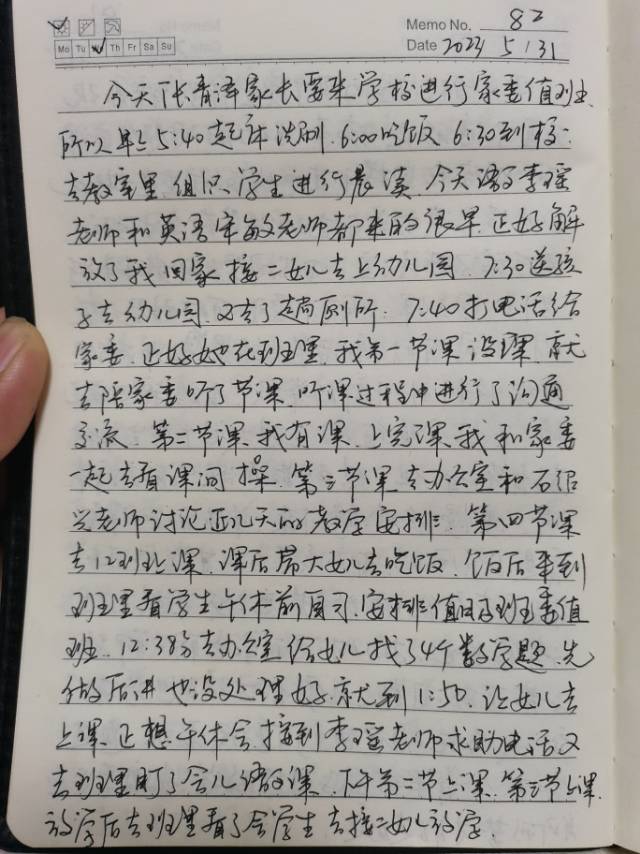 Memo No. 82
Mo Tu Th Fr Sa Su
Date 2023 5 / 31
今天张青泽家长要来学校进行家委值班.
所以早上5:40起床洗刷.6:00吃饭 6:30到校.
去教室里.组织学生进行晨读.今天语文李瑶
老师和英语宋敏老师都来的很早.正好解
放了我回家接二女儿去上幼儿园.7:30送孩
子去幼儿园.又去了趟厕所.7:40打电话给
家委.正好她在班里.我第一节课没课.就
去陪家委听了节课.听课过程中进行了沟通
交流.第二节课.我有课.上完课.我和家委
一起去看课间操.第三节课去办公室和石绍
兴老师讨论近几天的教学安排.第四节课
去12班上课.课后带大女儿去吃饭.饭后来到
班里看学生午休前自习.安排值日及班委值
班.12:38分去办公室给女儿找了4个数学题.先
做后讲也没处理好.就到1:50.让女儿去
上课.正想午休会接到李瑶老师求助电话又
去班里盯了会儿语文课.下午第二节上课.第三节上课.
放学后去班里看了会学生去接二女儿放学.